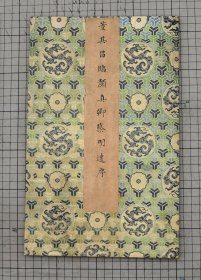 董其昌臨顏真卿蔡明遠序